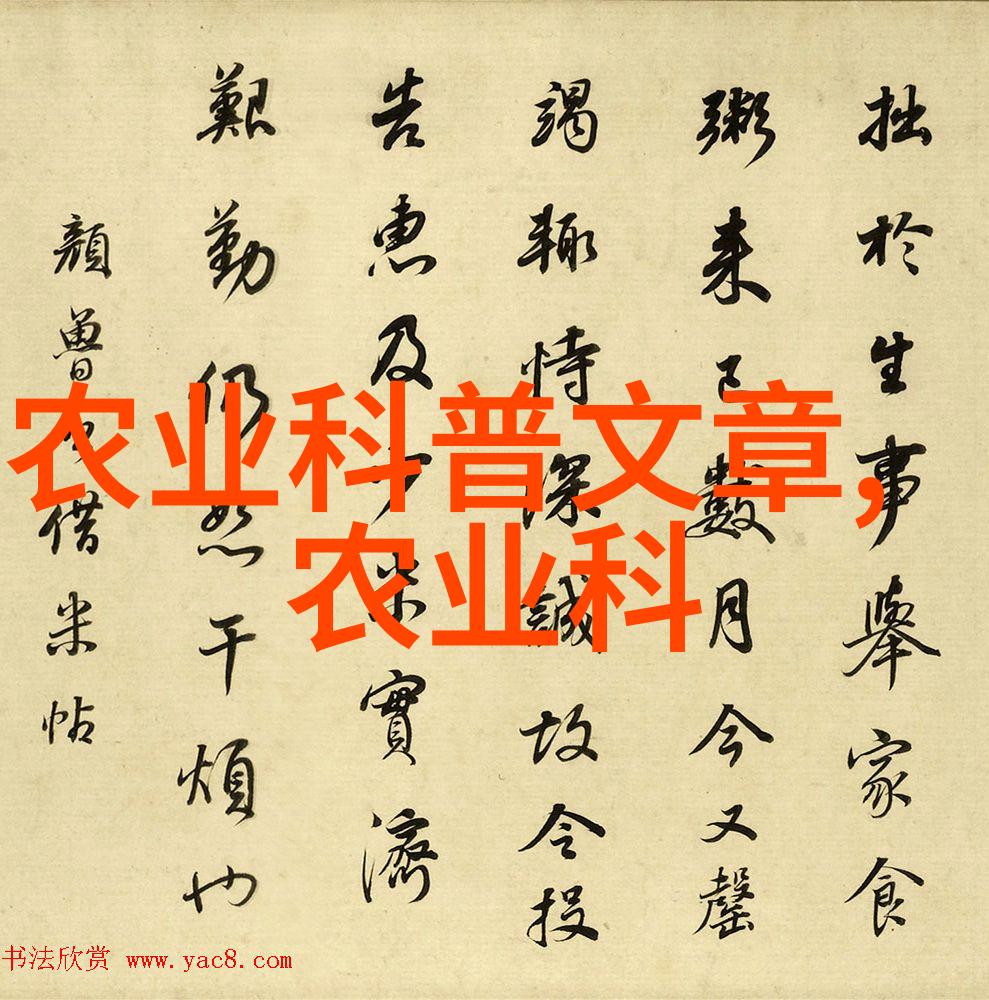 拙於生事舉家食
粥来已數月今又罄
竭輙恃深誠故令投
告惠及少米實濟
艱勤仍恕干煩也
顏魯公借米帖
农业科普文章,
农业科
书法欣赏 www.yac8.com